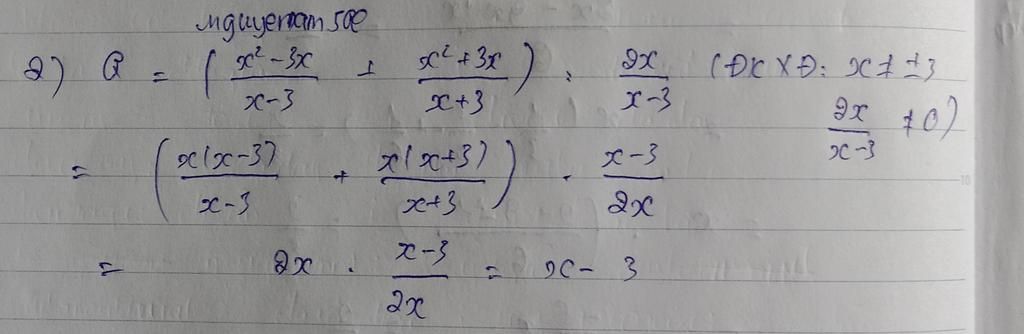 mguyetam508
2) Q = ( (x² - 3x)/(x - 3) + (x² + 3x)/(x + 3) ) : 2x/(x - 3) (ĐKXĐ: x ≠ ±3
2x/(x - 3) ≠ 0)
= ( x(x - 3)/(x - 3) + x(x + 3)/(x + 3) ) . (x - 3)/2x
= 2x . (x - 3)/2x = x - 3